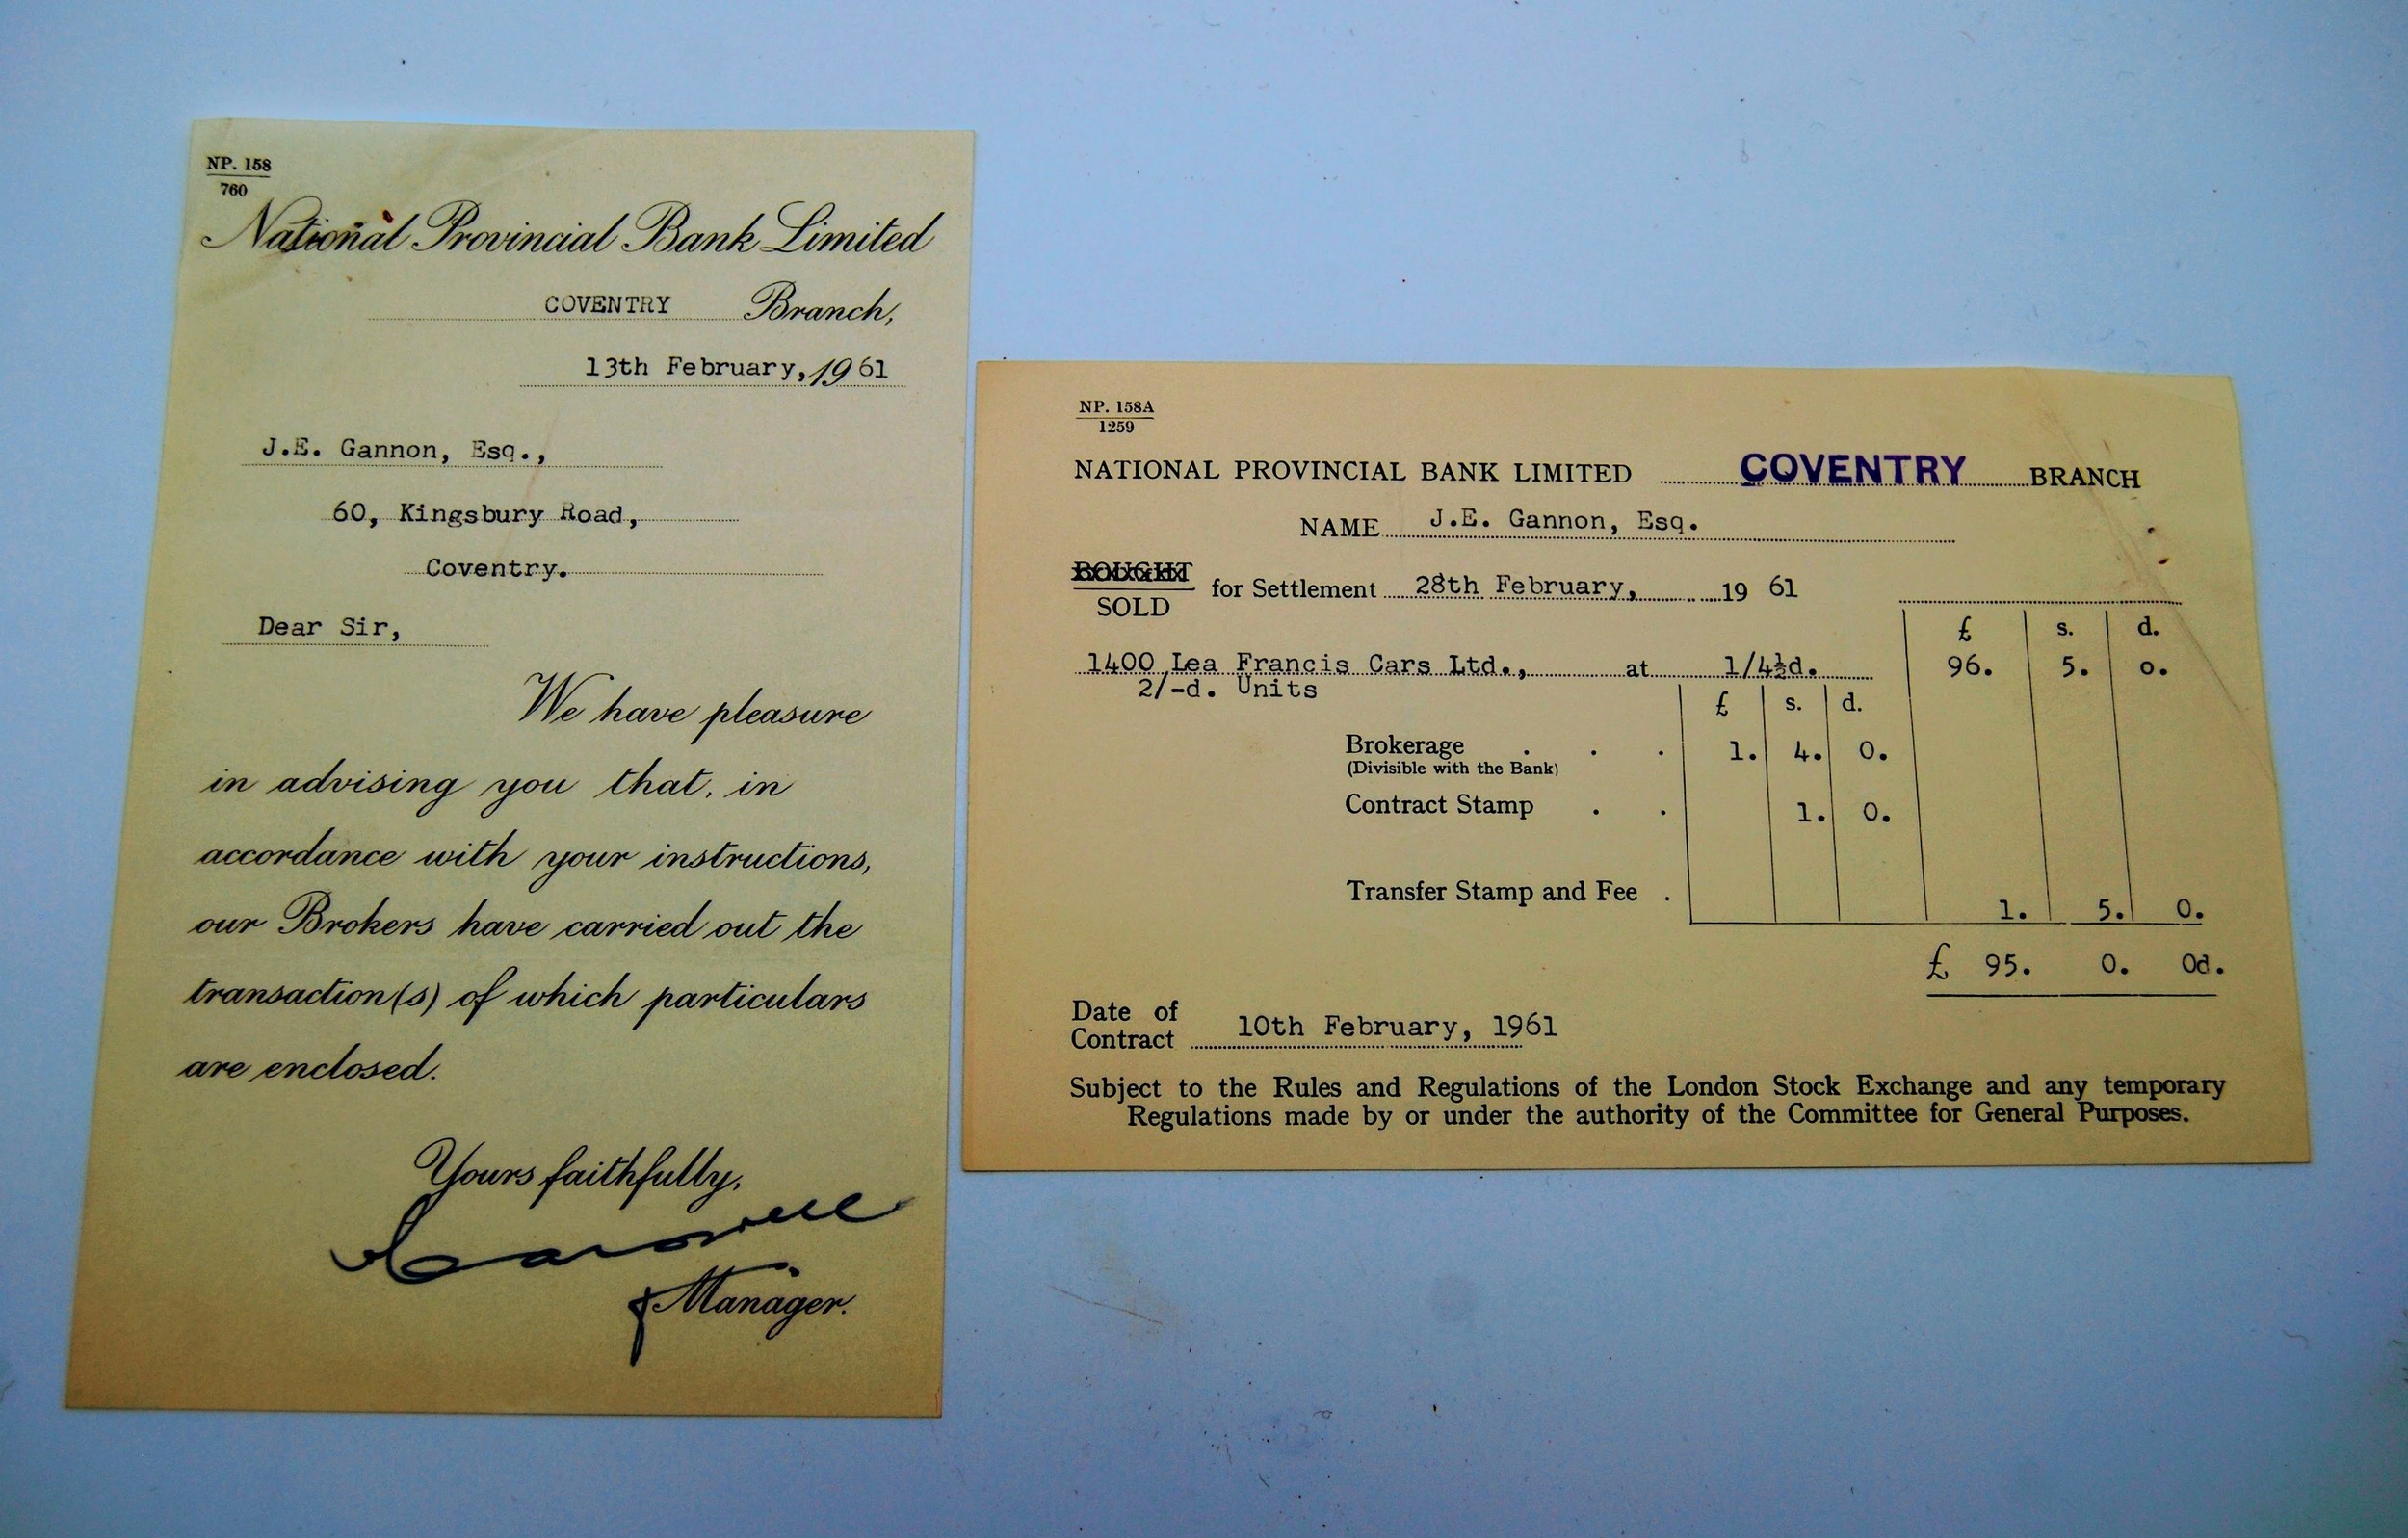 NP. 158
760
National Provincial Bank Limited
COVENTRY Branch,
13th February, 1961
J.E. Gannon, Esq.,
60, Kingsbury Road,
Coventry.
Dear Sir,
We have pleasure
in advising you that, in
accordance with your instructions,
our Brokers have carried out the
transaction(s) of which particulars
are enclosed.
Yours faithfully,
Manager.
NP. 158A
1259
NATIONAL PROVINCIAL BANK LIMITED COVENTRY BRANCH
NAME J.E. Gannon, Esq.
BOUGHT
SOLD for Settlement 28th February, 19 61
£ s. d.
1400 Lea Francis Cars Ltd., at 1/4½d. 96. 5. 0.
2/-d. Units
£ s. d.
Brokerage . . . 1. 4. 0.
(Divisible with the Bank)
Contract Stamp . . 1. 0.
Transfer Stamp and Fee . 1. 5. 0.
£ 95. 0. 0d.
Date of
Contract 10th February, 1961
Subject to the Rules and Regulations of the London Stock Exchange and any temporary
Regulations made by or under the authority of the Committee for General Purposes.